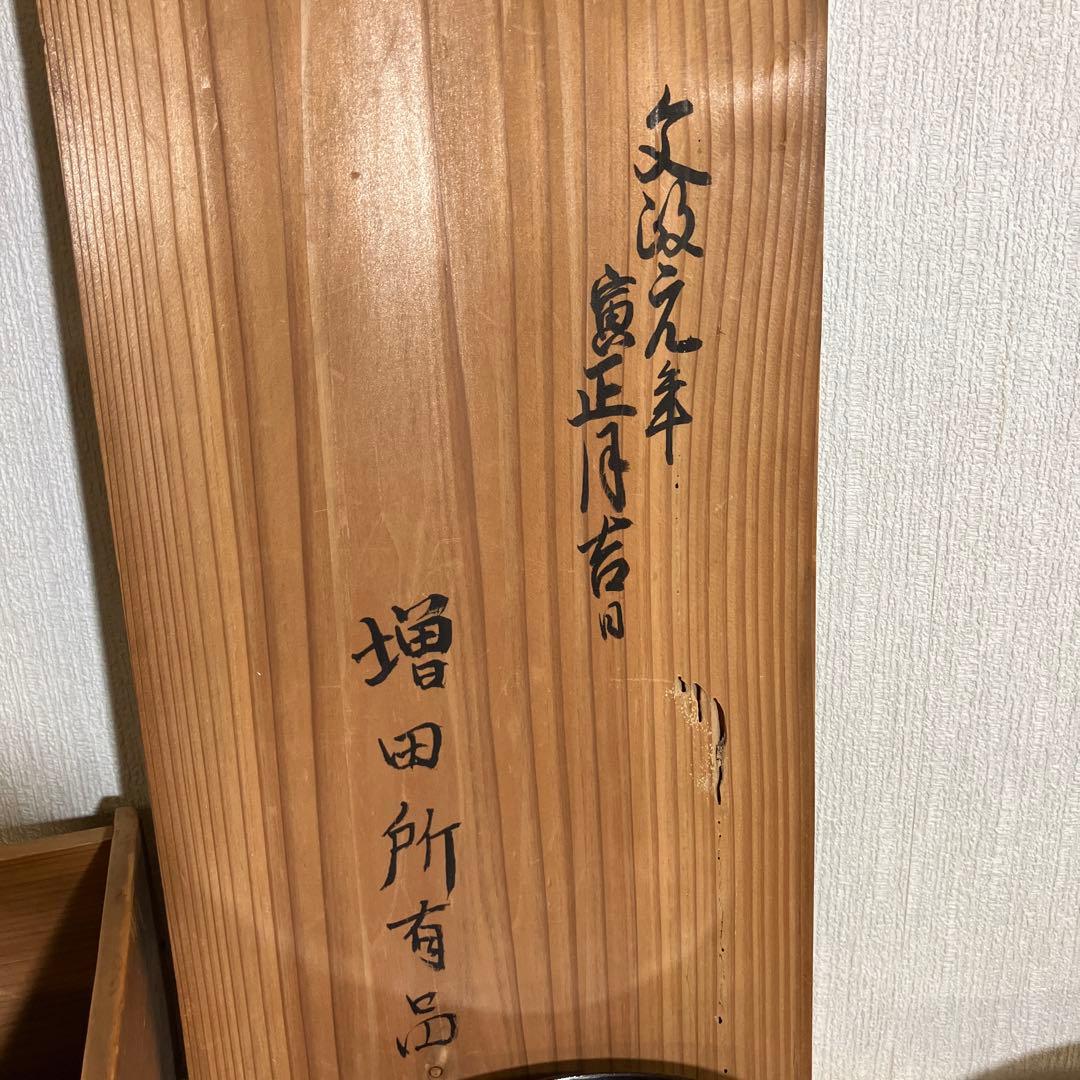 文政元年
寅正月吉日
増田所有品。